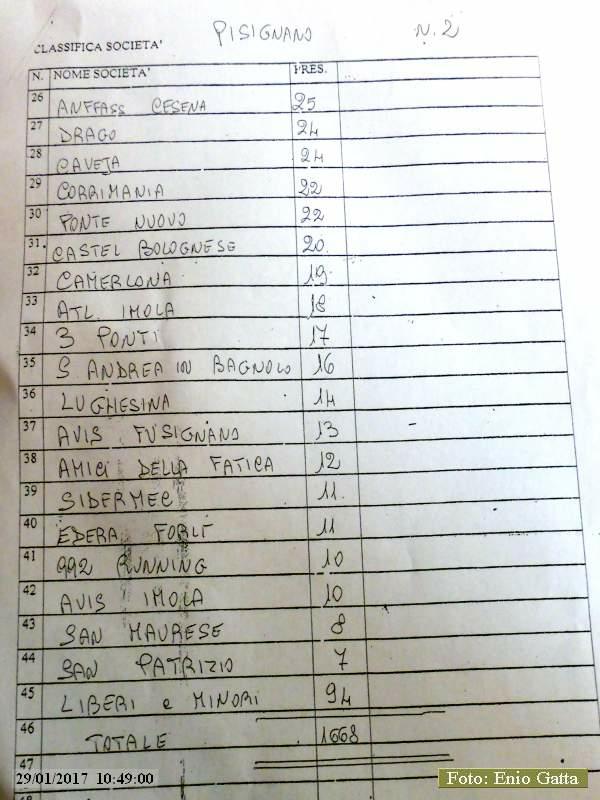 PISIGNANO N. 2
CLASSIFICA SOCIETA'
N. NOME SOCIETA' PRES.
26 ANFFASS CESENA 25
27 DRAGO 24
28 CAVEJA 24
29 CORRIMANIA 22
30 PONTE NUOVO 22
31. CASTEL BOLOGNESE 20
32 CAMERLONA 19
33 ATL. IMOLA 18
34 3 PONTI 17
35 S. ANDREA IN BAGNOLO 16
36 LUGHESINA 14
37 AVIS FUSIGNANO 13
38 AMICI DELLA FATICA 12
39 SIDERMEC 11
40 EDERA FORLI 11
41 992 RUNNING 10
42 AVIS IMOLA 10
43 SAN MAURESE 8
44 SAN PATRIZIO 7
45 LIBERI e MINORI 94
46 TOTALE 1668
47
29/01/2017 10:49:00
Foto: Enio Gatta